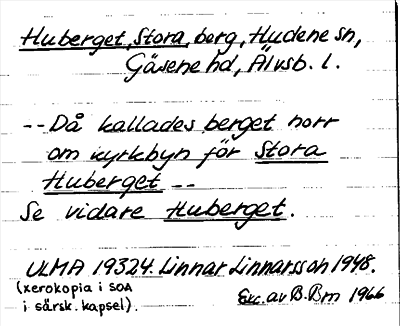 Huberget, Stora, berg, Hudene sn,
Gäsene hd, Älvsb. l.
-- Då kallades berget norr
om kyrkbyn för Stora
Huberget --
Se vidare Huberget.
ULMA 19324. Linnar Linnarsson 1948.
(xerokopia i SOA
i särsk. kapsel).
Exc. av B. Bm 1966